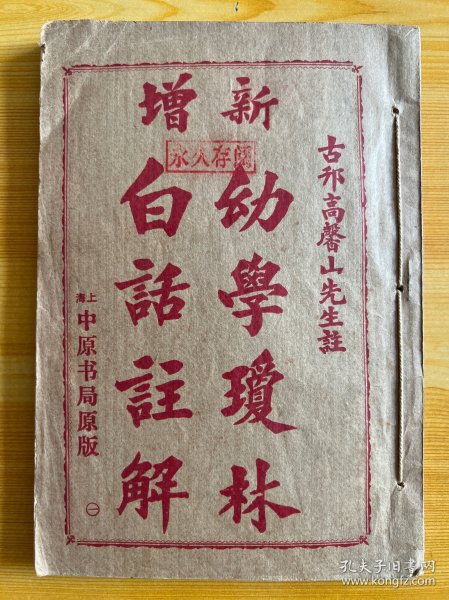 古邗高馨山先生註
新增
幼學瓊林
白話註解
永久存閱
上海
中原书局原版
㊀
孔夫子旧书网
www.kongfz.com